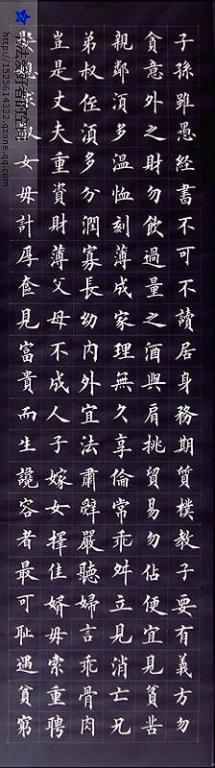 子孫雖愚經書不可不讀居身務期質樸教子要有義方勿
貪意外之財勿飲過量之酒與肩挑貿易勿佔便宜見貧苦
親鄰湏多溫恤刻薄成家理無久享倫常乖舛立見消亡兄
弟叔侄湏多分潤寡長幼內外宜法肅辭嚴聽婦言乖骨肉
豈是丈夫重資財薄父母不成人子嫁女擇佳婿毋索重聘
娶媳求淑女毋計厚奩見富貴而生諂容者最可恥遇貧窮
http://1525614332.qzone.qq.com